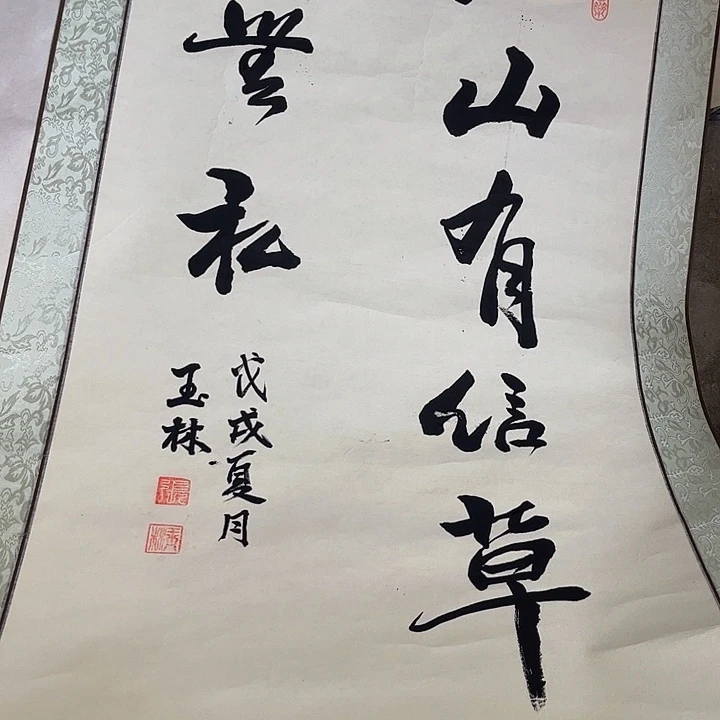 山有信草
無私
戊戌夏月
玉林